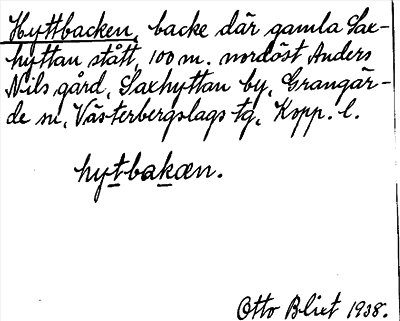 Hyttbacken, backe där gamla Sax-
hyttan stått, 100 m. nordöst Anders
Nils gård, Saxhyttan by, Grangär-
de sn, Västerbergslags tg, Kopp. l.
hytbakæn.
Otto Blixt 1938.